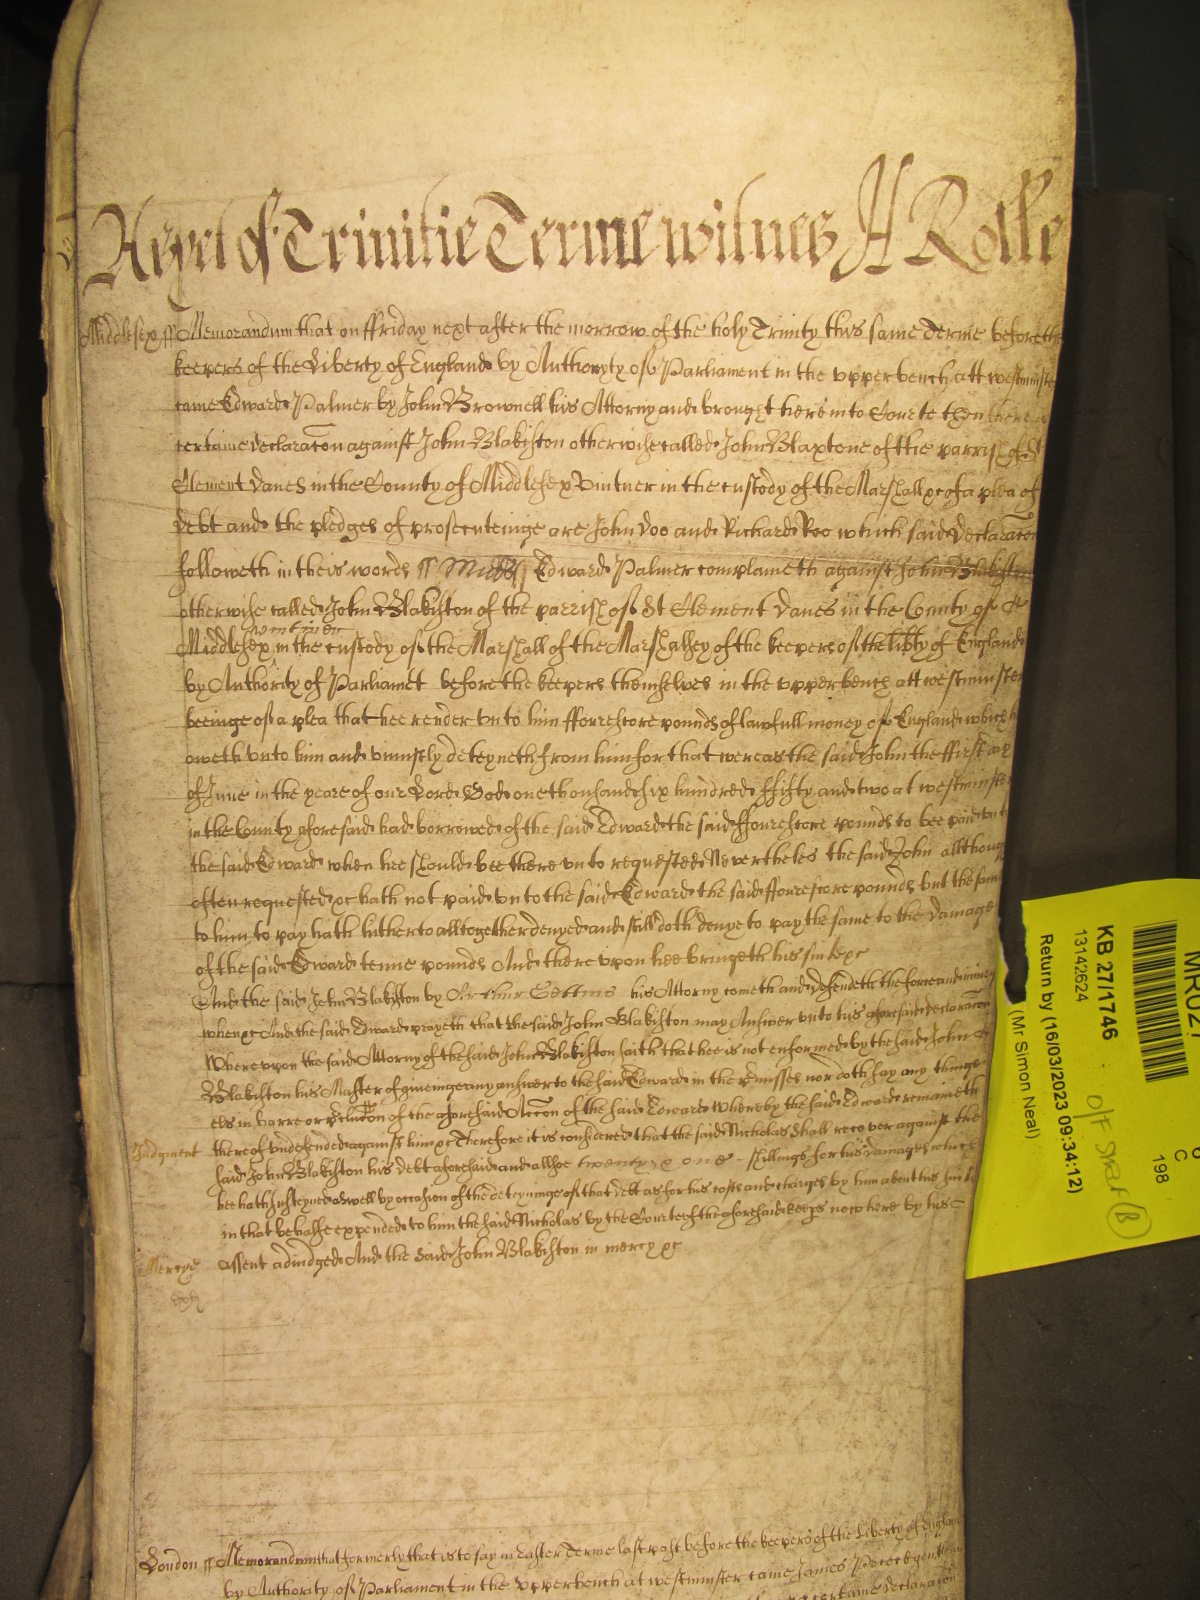 Yet of Trinitie Terme witnes H Rolle
Middlesex ss Memorandum that on ffriday next after the morrow of the holy Trinity this same Terme before the
keepers of the Liberty of England by Authoryty of Parliament in the upper bench att westminster
came Edward Palmer by John Brownell his Attorny and brought here into Courte then there a
certaine declaracon against John Blakiston otherwise called John Blaxtone of the parrish of St
Clement Danes in the County of Middlesex Vintner in the custody of the Marshall &c of a plea of
debt and the pledges of prosecuteinge are John Doo and Richard Roo which said declaracon
followeth in theis words ss Midds ss Edward Palmer complaineth against John Blakiston
otherwise called John Blakiston of the parrish of St Clement Danes in the County of
vintner
Middlesex in the custody of the Marshall of the Marshallsey of the keepers of the libty of England
by Authority of Parliamet before the keepers themselves in the upper bench att westminster
beeinge of a plea that hee render unto him ffourescore pounds of lawfull money of England which h
oweth unto him and uniustly deteyneth from him for that wereas the said John the ffirst day
of June in the yeare of our Lord God one thousand six hundred ffifty and two at westminster
in the County aforesaid had borrowed of the said Edward the said ffourescore pounds to bee paid unto
the said Edward when hee should bee there unto requested Nevertheles the said John allthough
often requested &c hath not paid unto the said Edward the said ffourescore pounds but the same
to him to pay hath hitherto alltogether denyed and still doth denye to pay the same to the damage
of the said Edward tenne pounds And there upon hee bringeth his suit &c
And the said John Blakiston by Arthur Gettins his Attorny cometh and defendeth the force and iniury
when &c And the said Edward prayeth that the said John Blakiston may Answer unto his aforesaid declaracon
Where upon the said Attorny of the said John Blakiston saith that hee is not enformed by the said John
Blakiston his Master of giueinge any answer to the said Edward in the premisses nor doth say any thinge
els in barre or preclucon of the aforesaid Accon of the said Edward Whereby the said Edward remaineth
Judgment thereof undefended against him &c Therefore it is considered that the said Nicholas shall recover against the
said John Blakiston his debt aforesaid and allsoe twenty & one shillings for his damages which
hee hath susteyned aswell by occasion of the deteyninge of that debt as for his costs and charges by him about his suit
in that behalfe expended to him the said Nicholas by the Courte of the aforesaid keeps now here by his
Mercye assent adiudged And the said John Blakiston in mercy &c
London ss Memorandum that formerly that is to say in Easter Terme last past before the keepers of the Liberty of England
by Authority of Parliament in the upper bench at westminster came James
certaine declaracon
KB 27/1746
13142624
Return by (16/03/2023 09:34:12)
(Mr Simon Neal)
198
C